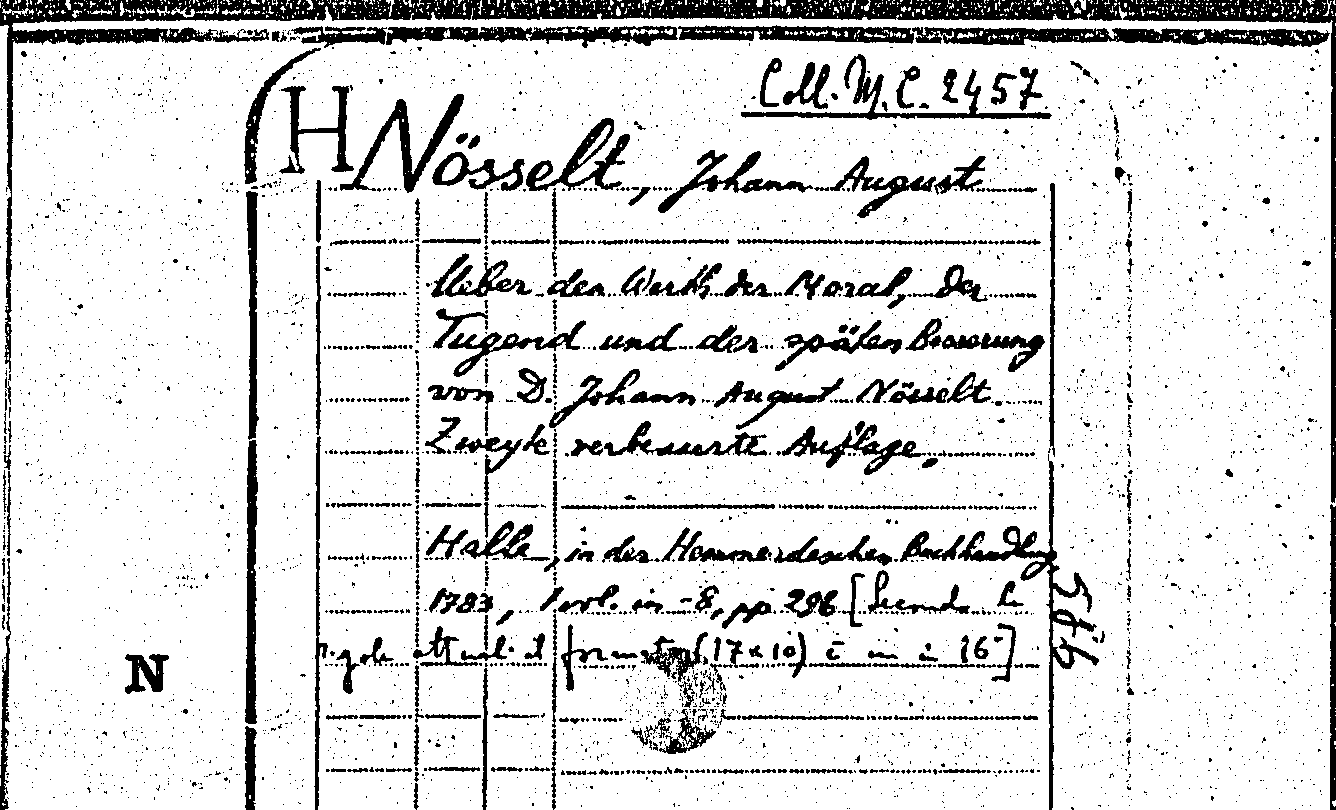 Coll. M. C. 2457
H Nösselt, Johann August
Ueber den Werth der Moral, der
Tugend und der späten Besserung
von D. Johann August Nösselt.
Zweyte verbesserte Auflage.
Halle, in der Hemmerdeschen Buchhandlung
1783, 1 vol. in -8, pp 296 [Secondo le
regole attuali il formato (17x10) è un in 16°]
N